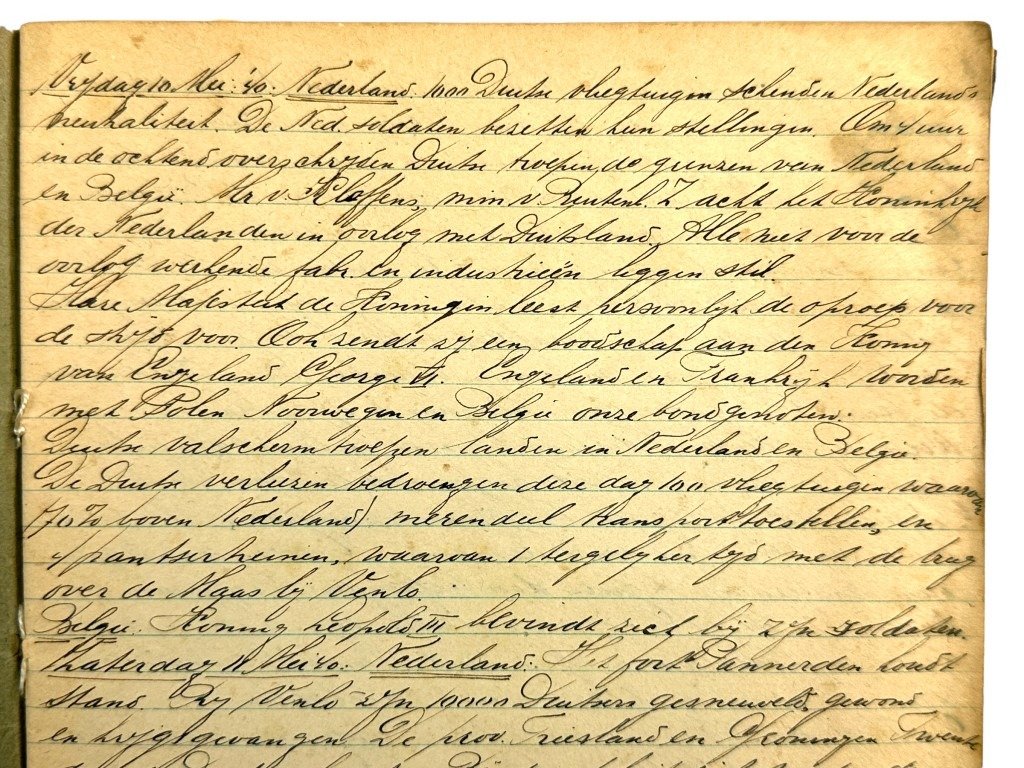 Vrijdag 10 Mei '40. Nederland. 1000 Duitse vliegtuigen schenden Nederland's
neutraliteit. De Ned. soldaten bezetten hun stellingen. Om 4 uur
in de ochtend overschrijden Duitse troepen de grenzen van Nederland
en België. Mr v. Kleffens, min v. Buitenl. Z acht het Koninkrijk
der Nederlanden in oorlog met Duitsland. Alle niet voor de
oorlog werkende fabr. en industrieën leggen stil
Hare Majesteit de Koningin leest persoonlijk de oproep voor
de strijd voor. Ook zendt zij een boodschap aan den Konig
van Engeland George VI. Engeland en Frankrijk worden
met Polen Noorwegen en België onze bondgenoten.
Duitse valschermtroepen landen in Nederland en België.
De Duitse verliezen bedroegen deze dag 100 vliegtuigen waarvan
(70% boven Nederland) merendeel transporttoestellen, en
4 pantsertreinen, waarvan 1 tergelijker tijd met de brug
over de Maas bij Venlo.
België. Koning Leopold III bevindt zich bij zijn soldaten.
Zaterdag 11 Mei 40. Nederland. Het fort Pannerden houdt
stand. Bij Venlo zijn 10000 Duitsers gesneuveld, gewond
en krijgsgevangen. De prov. Friesland en Groningen Twente